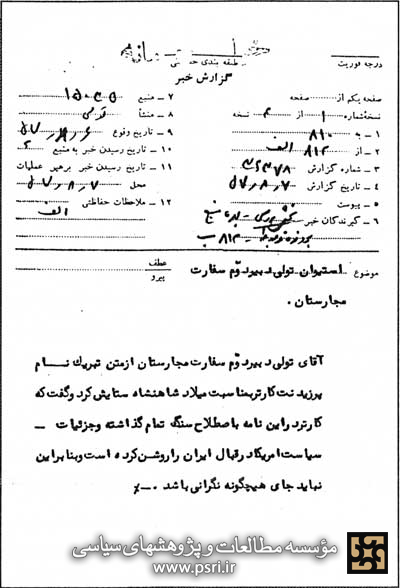 درجه فوریت
طبقه بندی
گزارش خبر
صفحه یکم از صفحه
نسخه شماره ۱ از نسخه
۱ ـ به ۸۱۰
۲ ـ از ۸۱۲ الف
۳ ـ شماره گزارش
۴ ـ تاریخ گزارش ۵۷٫۸٫۷
۵ ـ پیوست
۶ ـ گیرندگان خبر
۷ ـ منبع
۸ ـ منشأ
۹ ـ تاریخ وقوع ۵۷٫۸٫۶
۱۰ ـ تاریخ رسیدن خبر به منبع
۱۱ ـ تاریخ رسیدن خبر برهبر عملیات
محل ۵۷٫۸٫۷
۱۲ ـ ملاحظات حفاظتی الف
موضوع استیوان تولی دبیر دوّم سفارت
مجارستان .
عطف
پیرو
آقای تولی دبیر دوّم سفارت مجارستان از متن تبریك نام
پرزیدنت کارتر بمناسبت میلاد شاهنشاه ستایش کرد و گفت که
کارتر در این نامه با صطلاح سنگ تمام گذاشته و جزئیات ـ
سیاست امریکا در قبال ایران را روشن کرده است و بنابراین
نباید جای هیچگونه نگرانی باشد .
مؤسسه مطالعات و پژوهشهای سیاسی
www.psri.ir